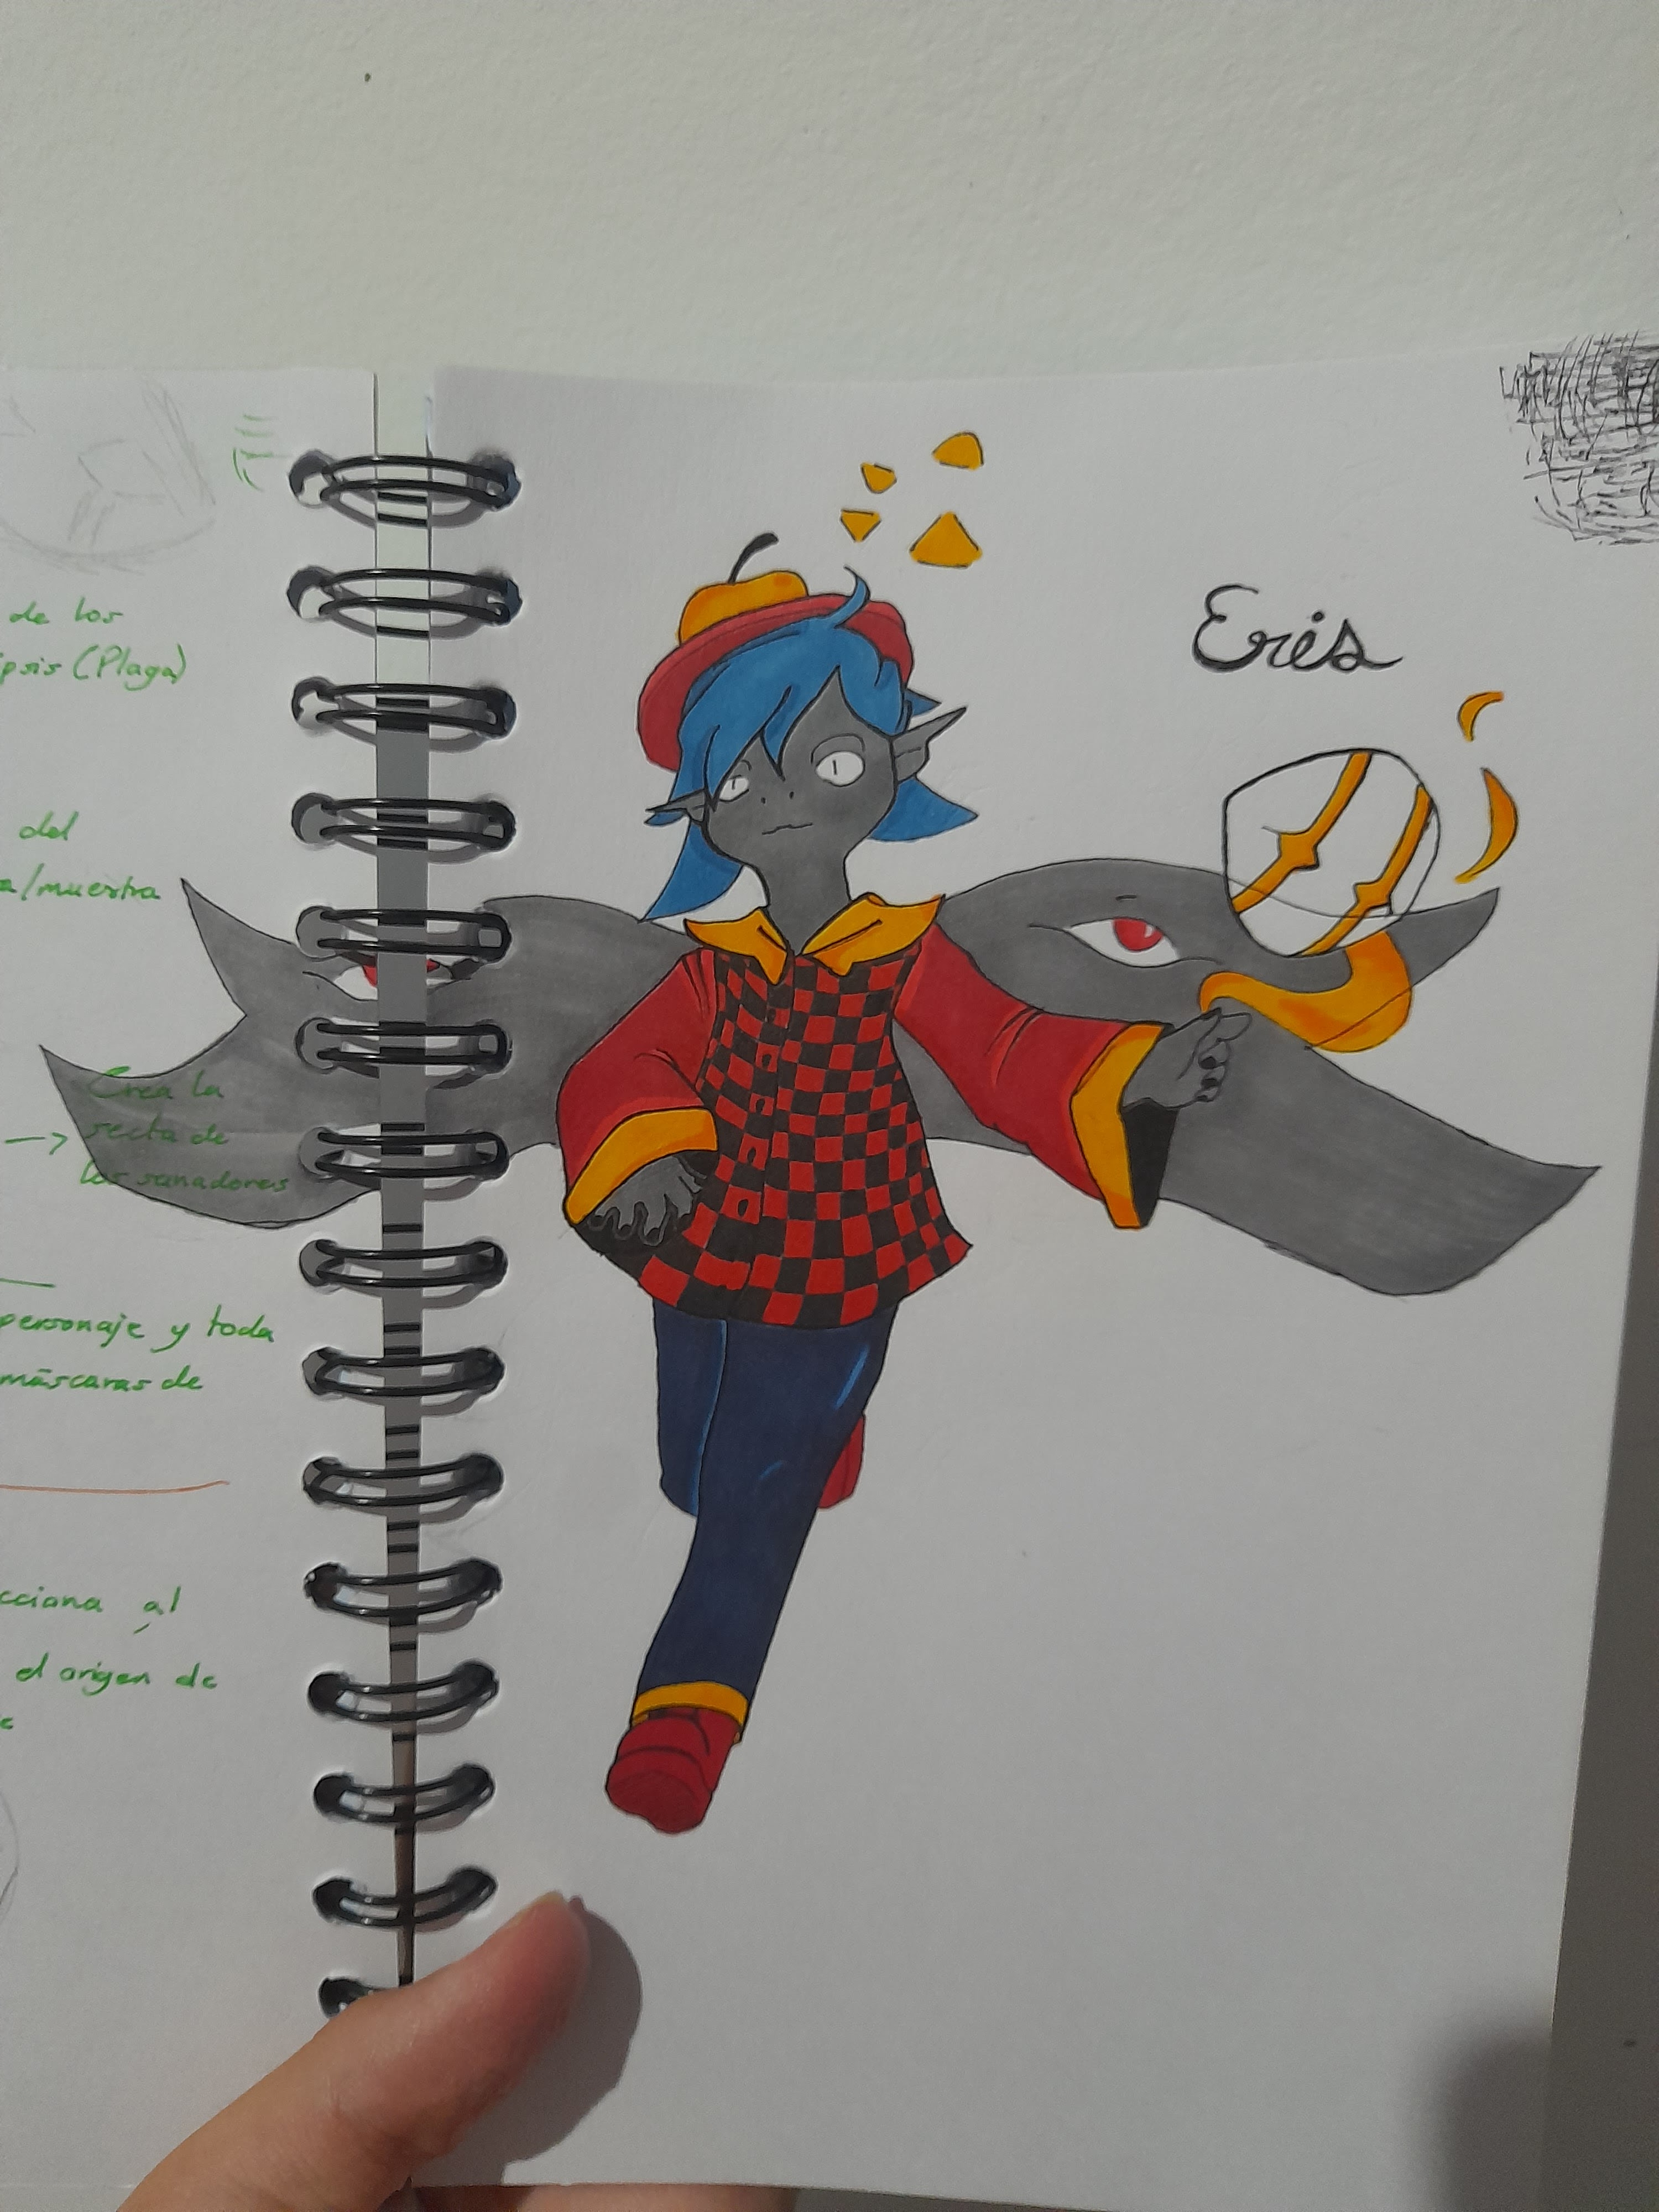 de los
ipsis (Plaga)
del
a/muestra
Crea la
→ secta de
los sanadores
personaje y toda
máscaras de
cciona al
el origen de
Eris